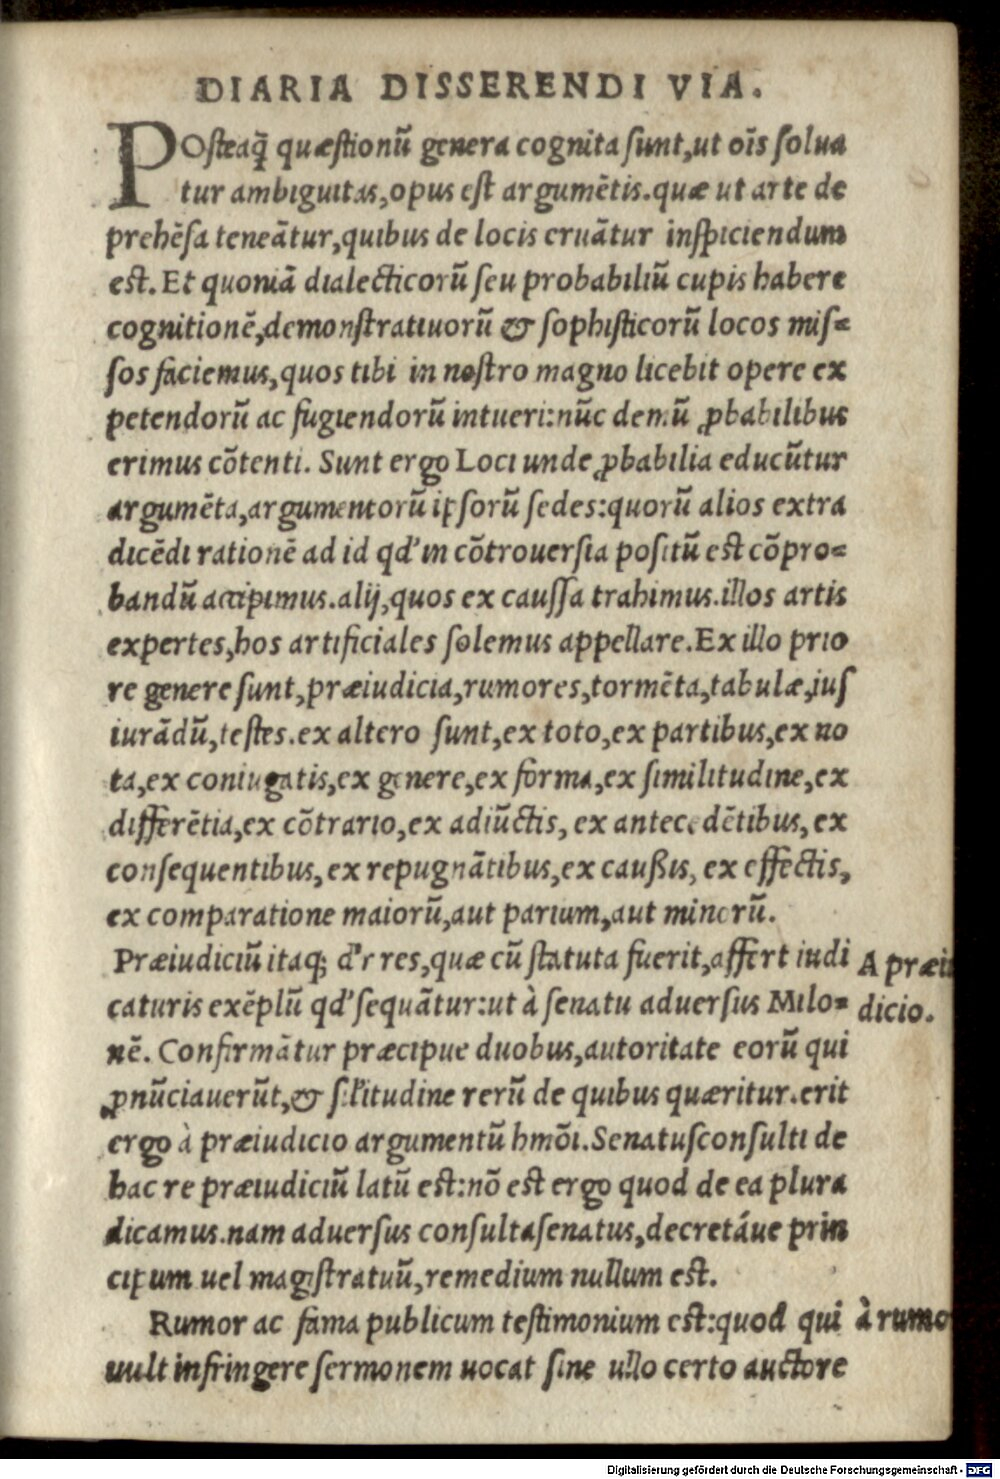 DIARIA DISSERENDI VIA.
POsteaq̃ quæstionũ genera cognita sunt,ut oĩs solua
tur ambiguitas,opus est argumẽtis.quæ ut arte de
prehẽsa teneãtur,quibus de locis eruãtur inspiciendum
est. Et quoniã dialecticorũ seu probabiliũ cupis habere
cognitionẽ,demonstratiuorũ & sophisticorũ locos mis=
sos faciemus,quos tibi in nostro magno licebit opere ex
petendorũ ac fugiendorũ intueri:nũc demũ ꝓbabilibus
erimus cõtenti. Sunt ergo Loci unde ꝓbabilia educũtur
argumẽta,argumentorũ ipsorũ sedes:quorũ alios extra
dicẽdi rationẽ ad id qd' in cõtrouersia positũ est cõpro=
bandũ accipimus.alij,quos ex caussa trahimus.illos artis
expertes,hos artificiales solemus appellare.Ex illo prio
re genere sunt,præiudicia,rumores,tormẽta,tabulæ,ius
iurãdũ,testes.ex altero sunt,ex toto,ex partibus,ex no
ta,ex coniugatis,ex genere,ex forma,ex similitudine,ex
differẽtia,ex cõtrario,ex adiũctis, ex antecedẽtibus,ex
consequentibus,ex repugnãtibus,ex caußis, ex effectis,
ex comparatione maiorũ,aut parium,aut minorũ.
Præiudiciũ itaq; d'r res,quæ cũ statuta fuerit,affert iudi
caturis exẽplũ qd' sequãtur:ut à senatu aduersus Milo=
nẽ. Confirmãtur præcipue duobus,autoritate eorũ qui
ꝓnũciauerũt,& sil'itudine rerũ de quibus quæritur.erit
ergo à præiudicio argumentũ hmõi.Senatusconsulti de
hac re præiudiciũ latũ est:nõ est ergo quod de ea plura
dicamus.nam aduersus consulta senatus,decretáue prin
cipum uel magistratuũ,remedium nullum est.
Rumor ac fama publicum testimonium est:quod qui
uult infringere sermonem uocat sine ullo certo auctore
A præiu
dicio.
à rumo
Digitalisierung gefördert durch die Deutsche Forschungsgemeinschaft - DFG